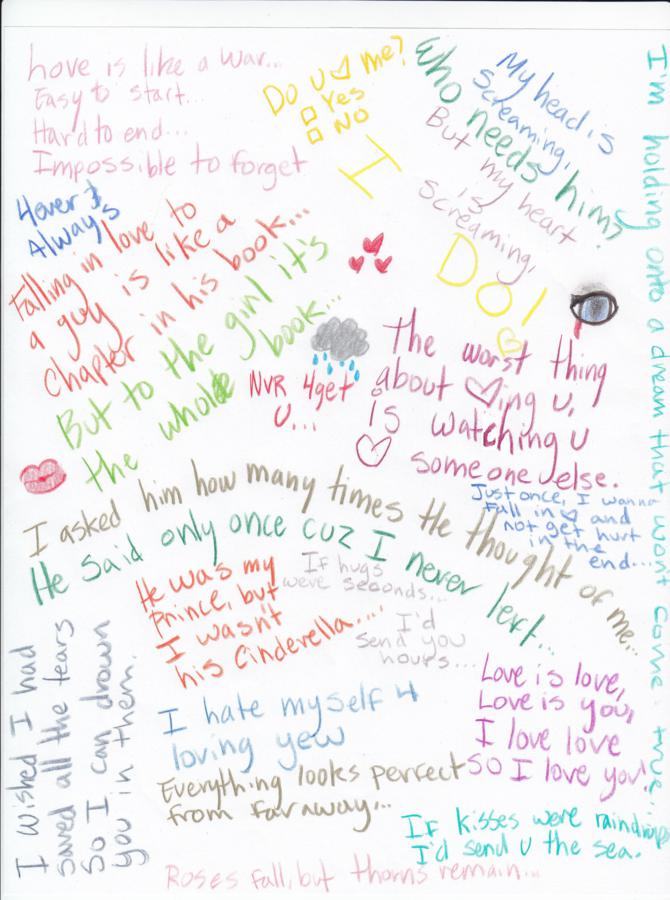 Love is like a war...
Easy to start...
Hard to end...
Impossible to forget
Do u ♡ me?
□ Yes
□ NO
I
DO!
My head is
Screaming,
who needs him?
But my heart
is
Screaming,
I'm holding onto a dream that won't come true...
4ever &
Always
Falling in love to
a guy is like a
Chapter in his book...
But to the girl it's
the whole book...
NVR 4get
U...
The worst thing
about ♡ing u,
is watching u
♡ someone else.
Just once, I wanna
fall in ♡ and
not get hurt
in the
end...
I asked him how many times He thought of me...
He said only once cuz I never left...
He was my
Prince, but
I wasn't
his Cinderella....
If hugs
were seconds...
I'd
send you
hours...
I wished I had
saved all the tears
So I can drown
you in them.
I hate myself 4
loving yew
Love is love,
Love is you,
I love love
SO I love you!
Everything looks perfect
from far away...
If kisses were raindrops
I'd send u the sea.
Roses fall, but thorns remain...